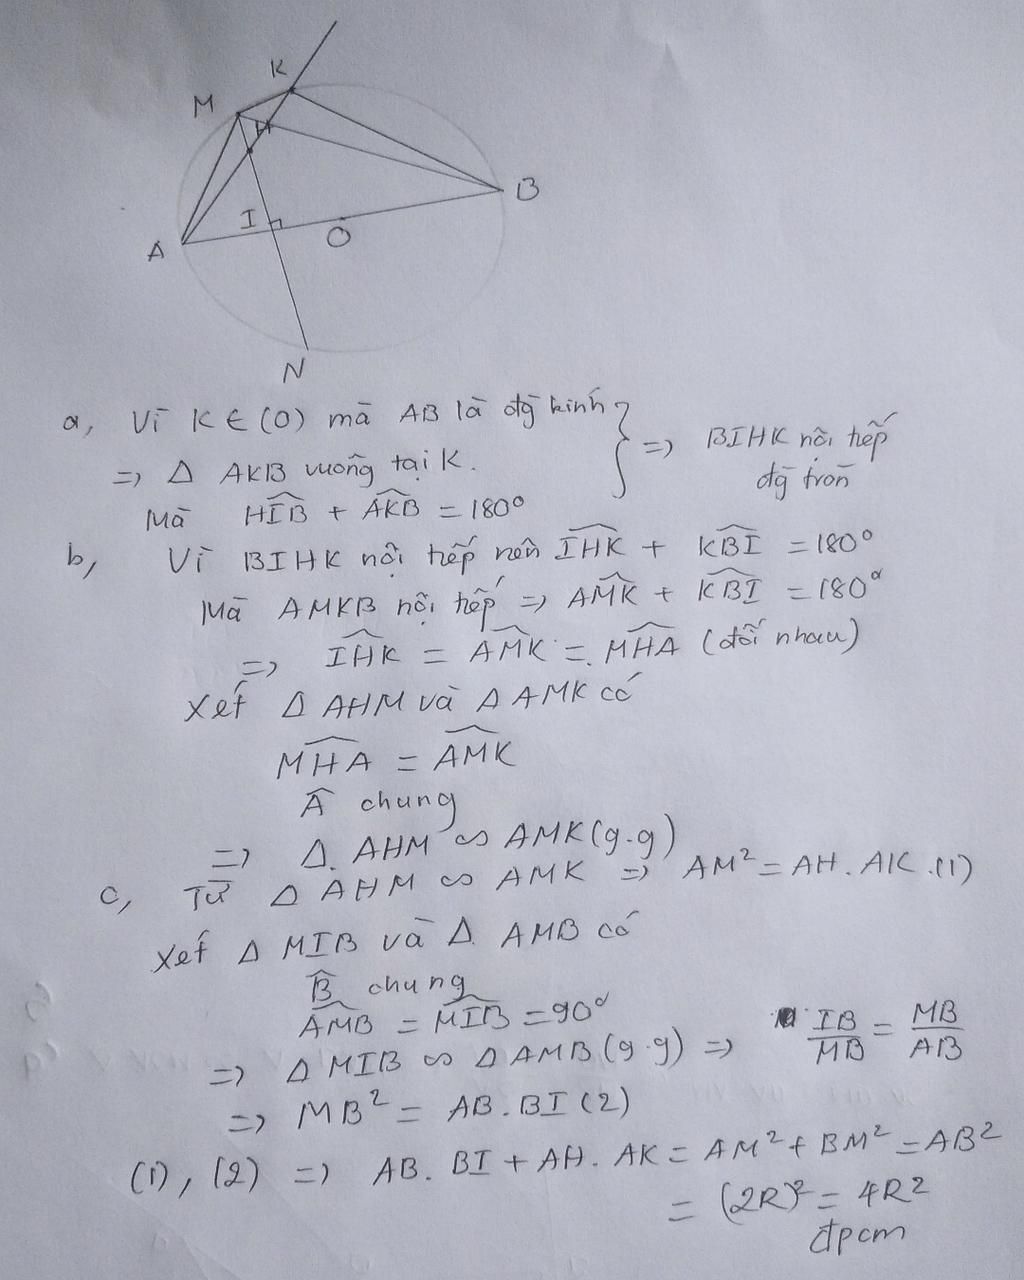 K
M
H
B
I
O
A
N
a, Vì K ∈ (O) mà AB là đg̀ kính
=> Δ AKB vuông tại K.
Mà \widehat{HIB} + \widehat{AKB} = 180°
} => BIHK nội tiếp
đg̀ tròn
b, Vì BIHK nội tiếp nên \widehat{IHK} + \widehat{KBI} = 180°
Mà AMKB nội tiếp => \widehat{AMK} + \widehat{KBI} = 180°
=> \widehat{IHK} = \widehat{AMK} = \widehat{MHA} (đối nhau)
Xét Δ AHM và Δ AMK có
\widehat{MHA} = \widehat{AMK}
\widehat{A} chung
=> Δ. AHM ∽ AMK (g.g)
c, Từ Δ AHM ∽ AMK => AM² = AH. AK .(1)
Xét Δ MIB và Δ. AMB có
\widehat{B} chung
\widehat{AMB} = \widehat{MIB} = 90°
=> Δ MIB ∽ Δ AMB (g.g) => IB/MB = MB/AB
=> MB² = AB. BI (2)
(1), (2) => AB. BI + AH. AK = AM² + BM² = AB²
= (2R)² = 4R²
đpcm